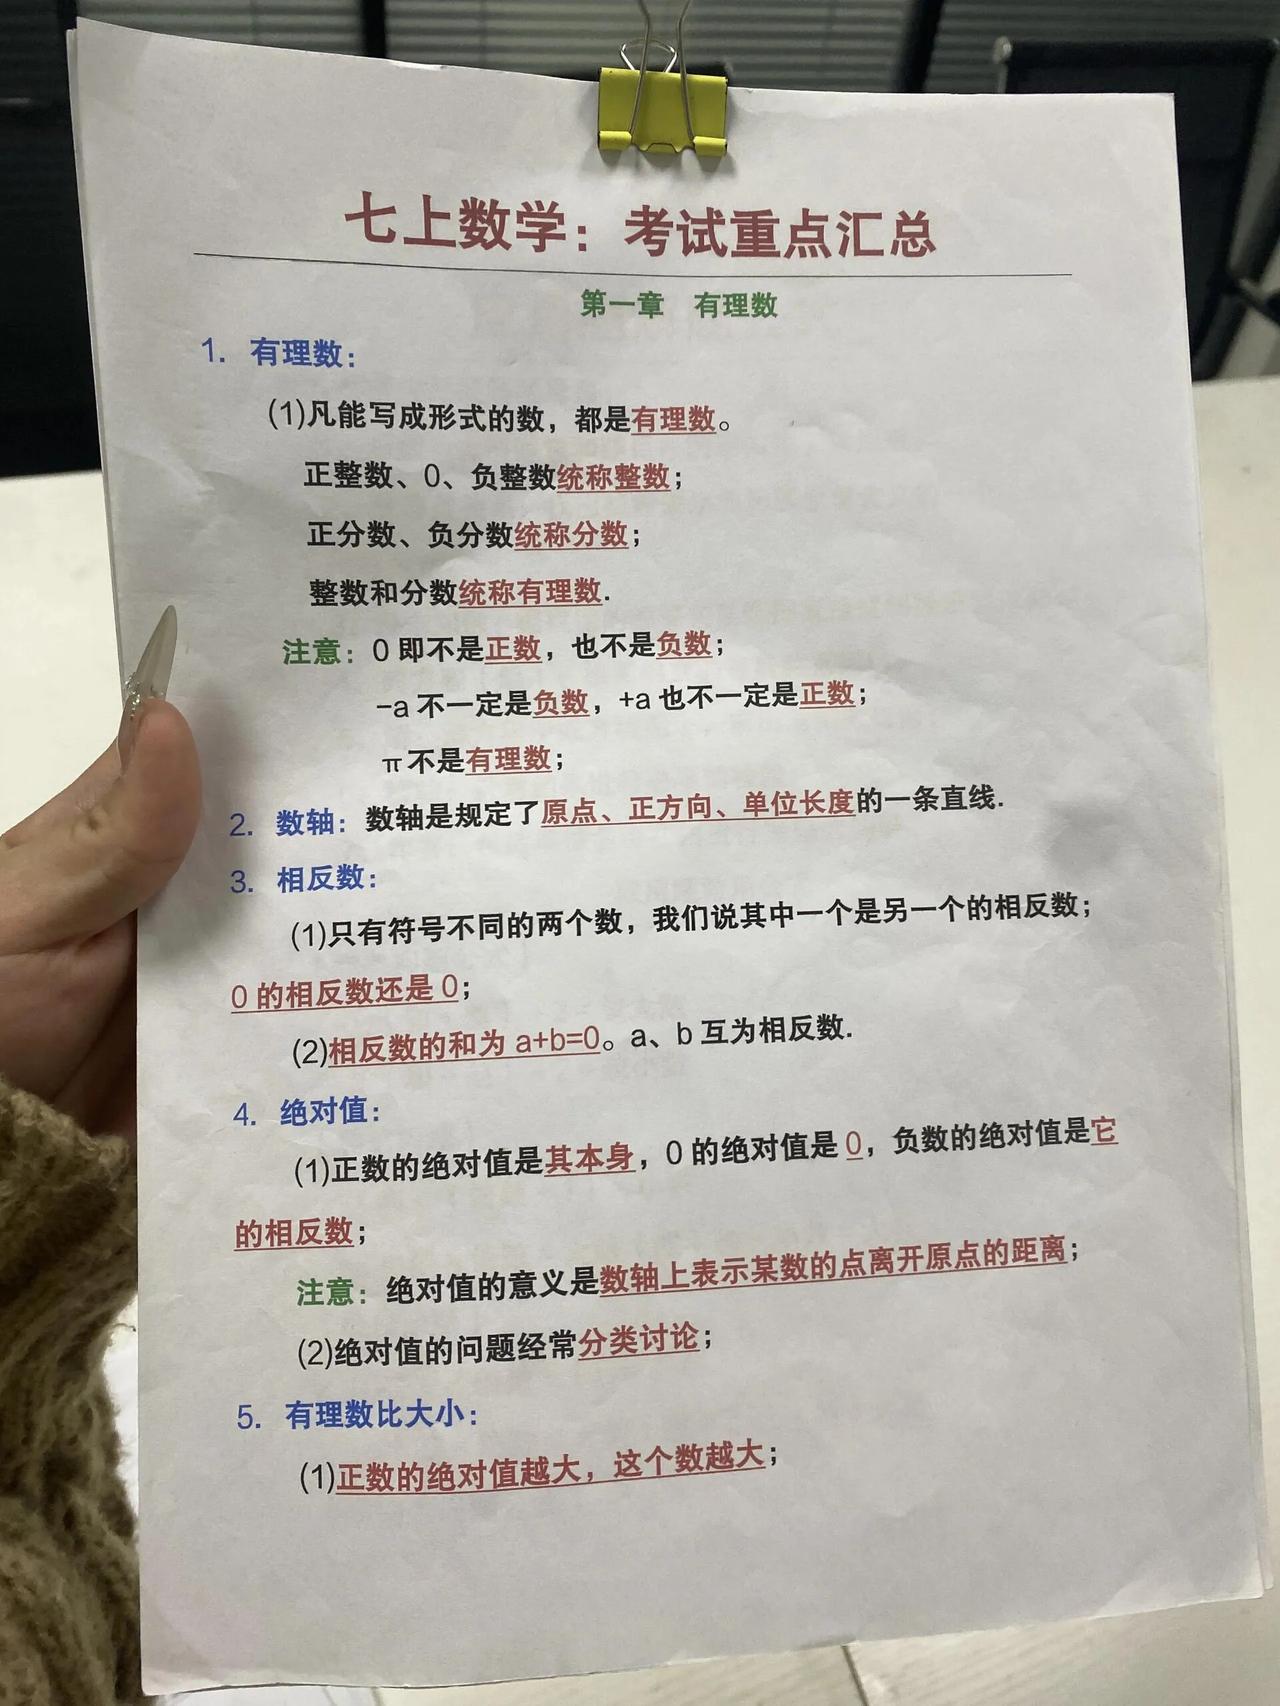 七上数学：考试重点汇总
第一章 有理数
1. 有理数：
(1)凡能写成形式的数，都是有理数。
正整数、0、负整数统称整数；
正分数、负分数统称分数；
整数和分数统称有理数.
注意：0 即不是正数，也不是负数；
-a 不一定是负数，+a 也不一定是正数；
π不是有理数；
2. 数轴：数轴是规定了原点、正方向、单位长度的一条直线.
3. 相反数：
(1)只有符号不同的两个数，我们说其中一个是另一个的相反数；
0 的相反数还是 0；
(2)相反数的和为 a+b=0。a、b 互为相反数.
4. 绝对值：
(1)正数的绝对值是其本身，0 的绝对值是 0，负数的绝对值是它
的相反数；
注意：绝对值的意义是数轴上表示某数的点离开原点的距离；
(2)绝对值的问题经常分类讨论；
5. 有理数比大小：
(1)正数的绝对值越大，这个数越大；